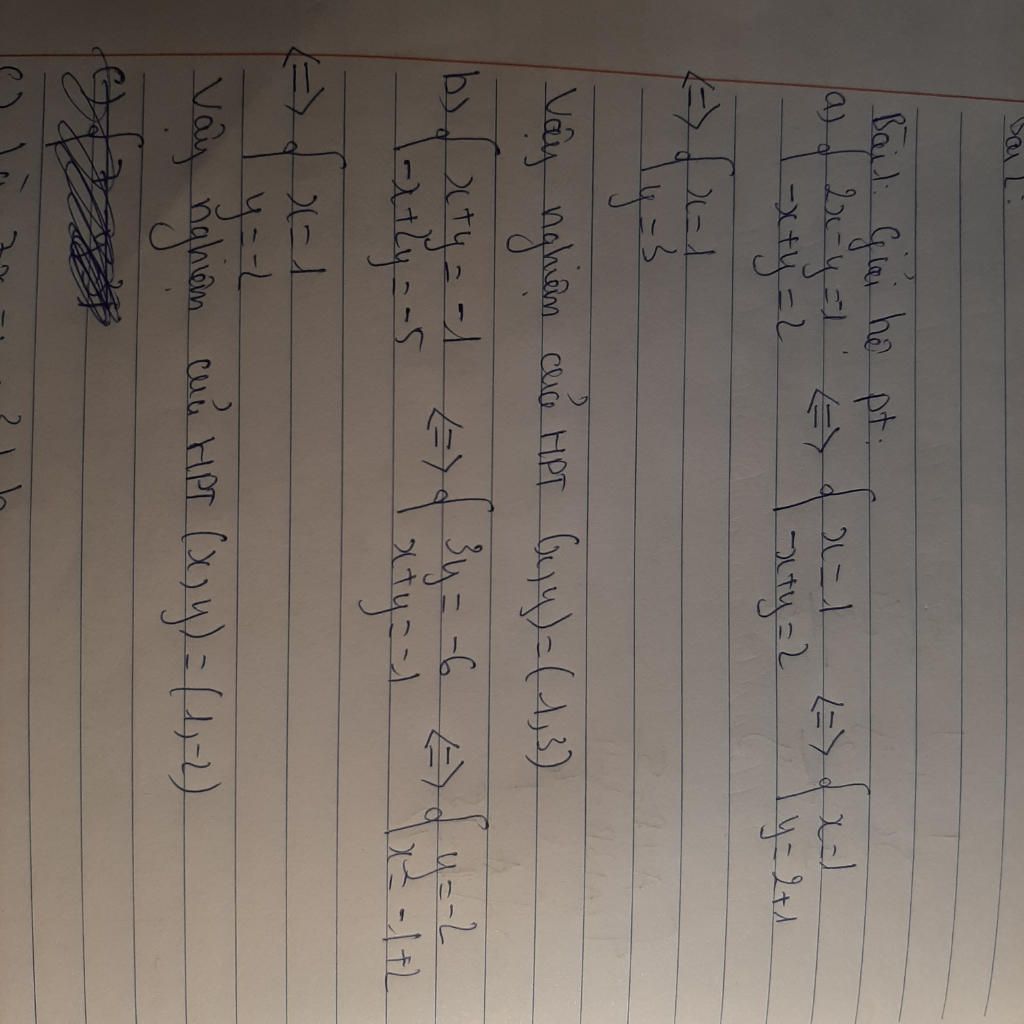 Bài 1: Giải hệ pt:
a) { 2x-y=-1 <=> { x=1 <=> { x=1
-x+y=2 -x+y=2 y=2+1
<=> { x=1
y=3
Vậy nghiệm của HPT (x,y)=(1,3)
b) { x+y=-1 <=> { 3y=-6 <=> { y=-2
-x+2y=-5 x+y=-1 x=-1+2
<=> { x=1
y=-2
Vậy nghiệm của HPT (x,y)=(1,-2)